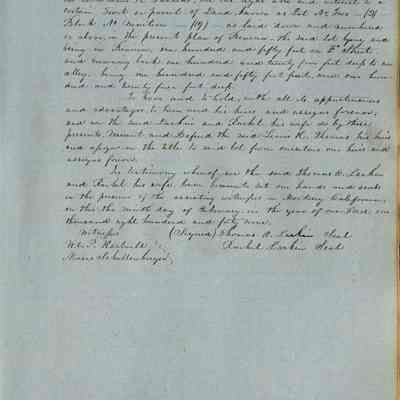 certain Tract or parcel of Land known as Lot No Two - (2)
Block No Nineteen - (19) - as laid down and numbered
or above, in the present plan of Benicia - the said lot lying and
being in Benicia, one hundred and fifty feet on F Street
and running back one hundred and twenty five feet deep to an
alley, being one hundred and fifty feet front, and one hun-
dred and twenty five feet deep.
To have and to hold, with all its appurtenances
and advantages, to him and his heirs and assigns forever,
and we the said Larkin and Rachel his wife do by these
presents, Warrant and Defend the said Lewis R. Thomas his heirs
and assigns in the title to said lot from ourselves our heirs and
assigns forever.
In testimony whereof, we the said Thomas O. Larkin
and Rachel his wife, have hereunto set our hands and seals
in the presence of the assisting witnesses in Monterey California,
on this the ninth day of February in the year of our Lord one
thousand eight hundred and forty nine.
Witnesses (Signed) Thomas O. Larkin Seal
Wm. P. Rachel Larkin Seal
Moses Schallenberger